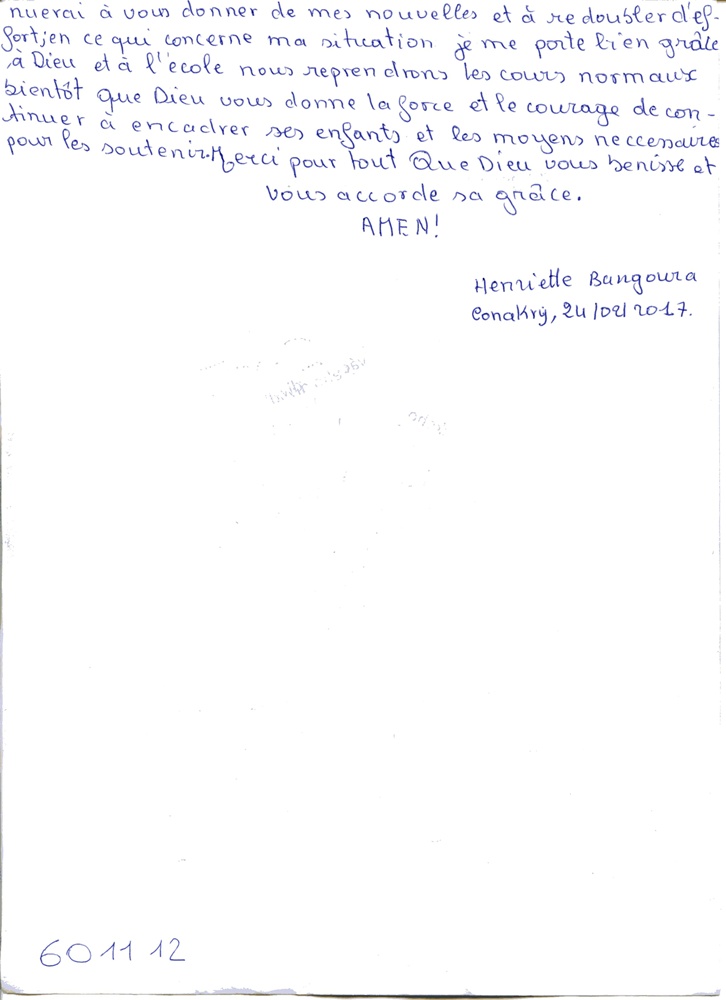 nuerai à vous donner de mes nouvelles et à redoubler d'ef-
fort; en ce qui concerne ma situation je me porte bien grâce
à Dieu et à l'école nous reprendrons les cours normaux
bientôt que Dieu vous donne la force et le courage de con-
tinuer à encadrer ses enfants et les moyens neccessaires
pour les soutenir. Merci pour tout Que Dieu vous benisse et
vous accorde sa grâce.
AMEN!
Henriette Bangoura
Conakry, 24/02/2017.
601112